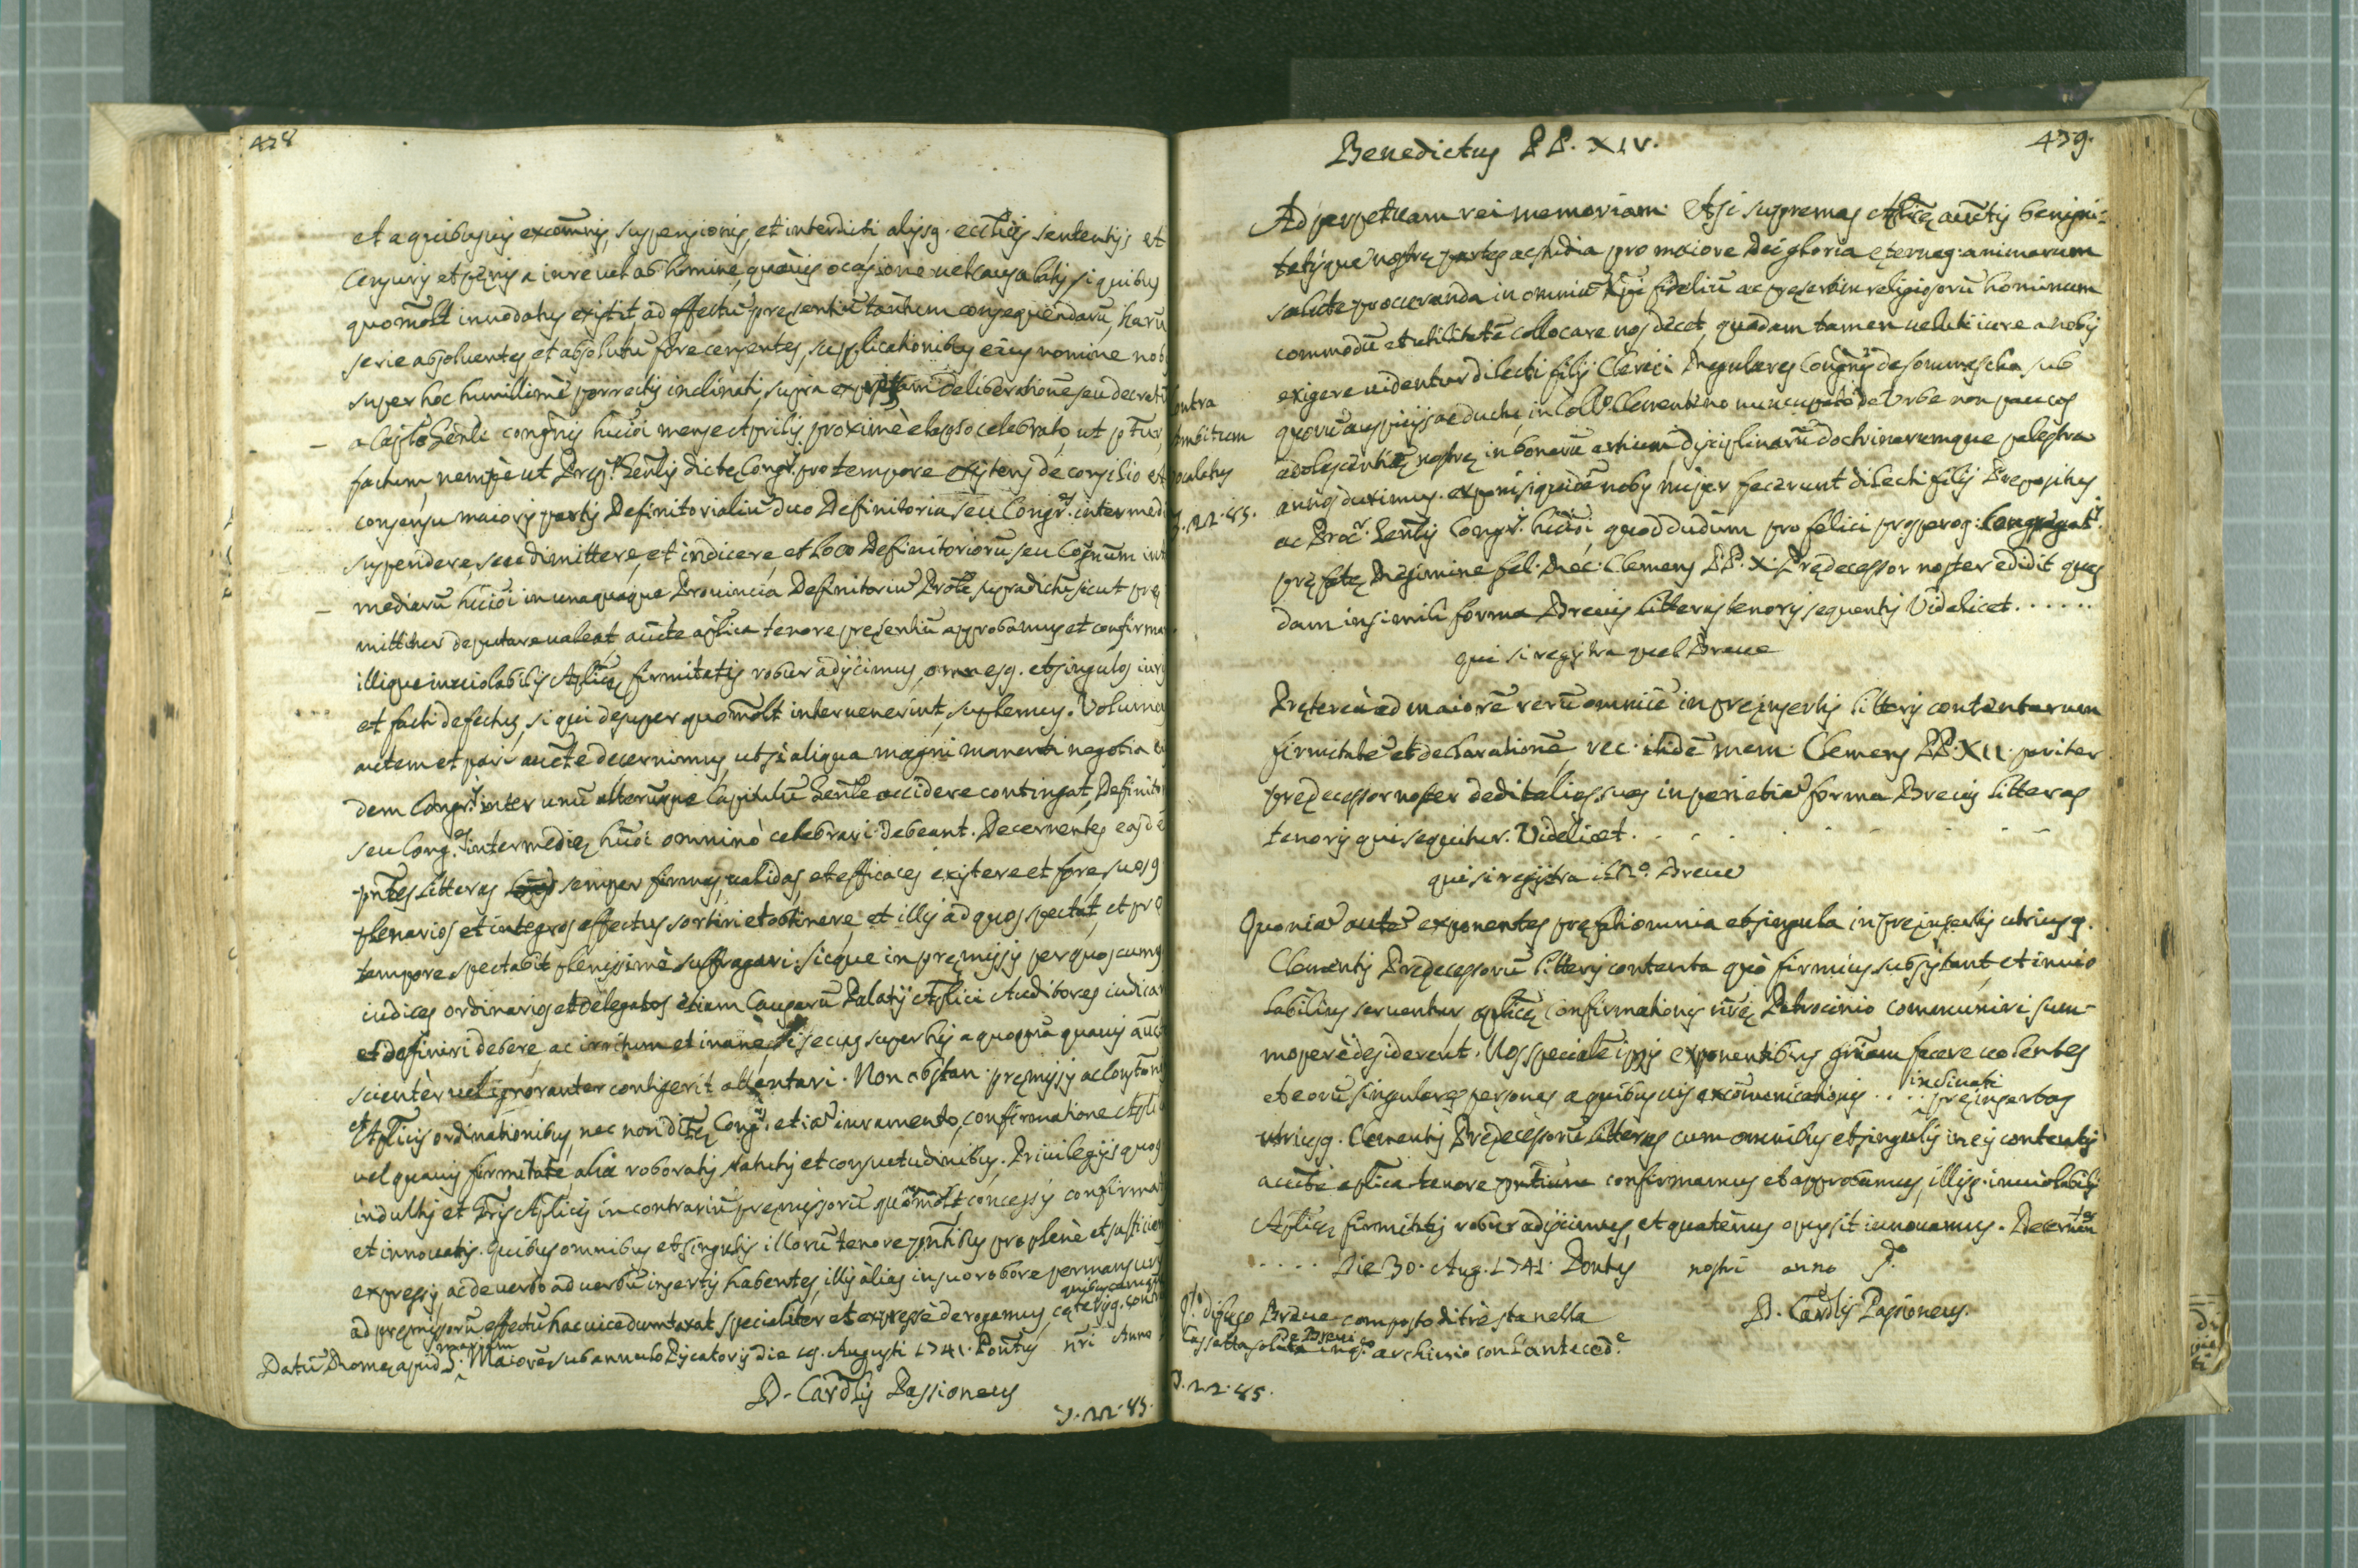 428
et a quibusvis excom̄nis, suspensionis, et interdicti, alijsq. eccl̄icis sententijs et
Censuris et pęnis a iure vel ab homine, quavis ocasione vel causa latis si quibus
quomōlt innodatus existit, ad effectū pręsentiū tantum consequendarū, harū
serie absolventes, et absolutū fore censentes, supplicationibus eius nomine nob
super hoc humillimè porrectis inclinati, supra deliberationē seu decretū
a Capłō Gēnli congr̄nis hūiōi mense Aprilis proximè elapso celebrato, ut p̄fur,
factum, nempè ut Prep.s Gēnlis dictę Congr.s pro tempore existens de consilio et
consensu maioris partis Definitorialiū duo Definitoria seu Congr.s intermedi
suspendere, seu dimittere, et indicere, et loco Definitoriorū seu Cogñum int
mediarū hūiōi in unaquaque Provincia Definitoriū Prōle supradictū sicut pre
mittitur deputare valeat, aucte aplica tenore pręsentiū approbamus et confirma
illique inviolabilis Aplicę firmitatis robur adijcimus, omnesq. et singulos iuris
et facti defectus, si qui desuper quomōlt intervenerint, suplemus. Volumus
autem et pari aucte decernimus, ut si aliqua magni momenti negotia e
dem Congr.s inter unū alterumque Capitulū Gēnle accidere contingat, Definitor
seu Cong.s intermedię hūiōi omninò celebrari debeant. Decernentes easdē
pn̄tes litteras semper firmas, validas, et efficaces existere et fore, suosq
plenarios et integros effectus sortiri et obtinere, et illis ad quos spectat, et pro
tempore spectabit plenissimè suffragari: sicque in pręmissis per quoscumq
iudices ordinarios et delegatos etiam Causarū Palatij Aplici Auditores iudicar
et definiri debere, ac irritum et inane si secus super his a quoquā quavis auct
scienter vel ignoranter contigerit attentari. Non obstan. pręmissis ac Constōni
et Aplicis ordinationibus, nec non dictę Cong.s etiā iuramento, confirmatione Apli
vel quavis firmitate alia roboratis statutis et consuetudinibus. Privilegijs quoq
indultis et Lris Aplicis in contrariū pręmissorū quomōlt concessis confirmat
et innovatis. quibus omnibus et singulis illorū tenore pn̄tibus pro plenè et sufficien
expressis, ac de verbo ad verbū insertis habentes, illis alias in suo robore permansuris
ad pręmissorū effectū hac vice dumtaxat specialiter et expressè derogamus, cęterisq. contr quibuscumq
Datū Romę apud S. Mariam Maiorē sub annulo Piscatoris die 19. Augusti 1741. Pontus nr̄i Anno
D. Card̄lis Passioneus
J. 22. 85.
ontra
ambitum
ocalitus
J. 22. 83.
Benedictus PP. XIV.
439.
Ad perpetuam rei memoriam. Etsi supremas Aplicę auctis benigni-
tatisque nostrę partes ac studia pro maiore Dei gloria ęternaq. animarum
salute procuranda in omniū Xpi fideliū ac pręsertim religiosorū hominum
commodū et utilitatē collocare nos decet, quadam tamen veluti iure a nobis
exigere videntur dilecti filij Clerici Regulares Congr̄nis de Somascha sub
quorū auspicijs ac ductu, in Coll.o Clementino nuncupato de Urbe non paucos
adolescentię nostrę in bonarū artium disciplinarū doctrinarumque palęstra
annos duximus. exponi siquidē nobis nuper fecerunt dilecti filij Prepositus
ac Proc.r Gēnlis Congr.s hūiōi, quod dudum pro felici prosperoq. Congregat.s
pręfatę Regimine fel. Rec. Clemens PP. X. Prędecessor noster edidit quas
dam in simili forma Brevis litteras tenoris sequentis Videlicet......
qui si registra quel Breve
Pręterea ad maiorē rerū omniū in pręinsertis litteris contentarum
firmitatē et declarationē, rec. itidē mem. Clemens PP. XII. pariter
prędecessor noster dedit alias suas in peri etiā forma Brevis litteras
tenoris qui sequitur. Videlicet. . . . . .
qui si registra il 2.o Breve
Quoniā autē exponentes pręfati omnia et singula in pręinsertis utriusq.
Clementis Prędecessorū litteris contenta quò firmius subsistant, et invio
labilius serventur, aplicę confirmationis nr̄ę Patrocinio communiri sum-
moperè desiderent. Nos specialē ipsis exponentibus grām facere volentes
et eorū singulares personas a quibusvis excōmunicationis .... inclinati pręinsertas
utriusq. Clementis Prędecessorū litteras cum omnibus et singulis in eis contentis
aucte aplica tenore pn̄tium confirmamus et approbamus, illisq. inviolabilis
Aplicę firmitatis robur adijcimus, et quatenus opus sit innovamus. Decernentes
..... Die 30. Aug. 1741. Pontus nostri anno P.o
D. Card̄lis Passioneus.
Breve composto di trè sta nella
Cassetta De Brevi archivio con l'anteced.e
J. 22. 85.